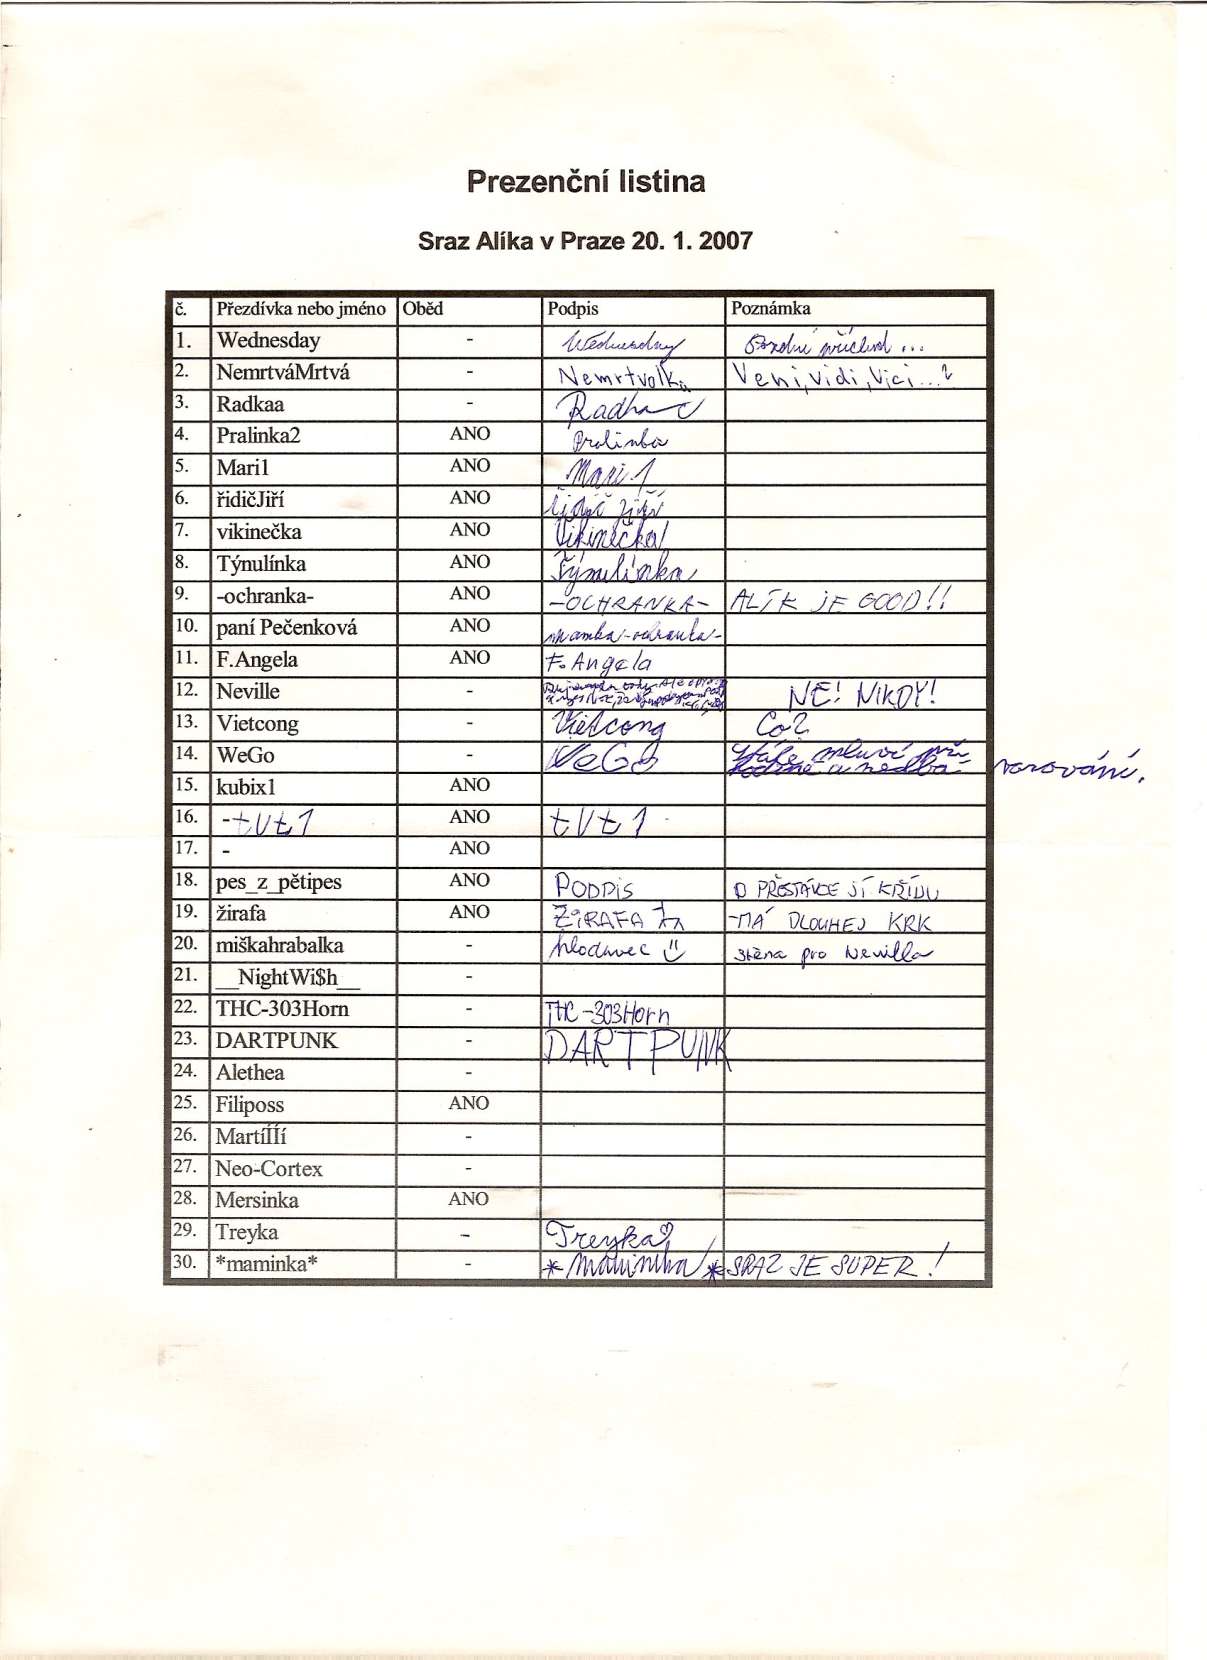 Prezenční listina
Sraz Alíka v Praze 20. 1. 2007
č. Přezdívka nebo jméno Oběd Podpis Poznámka
1. Wednesday - Wednesday Pozdní příchod ...
2. NemrtváMrtvá - Nemrtvolka Veni, vidi, vici ...?
3. Radkaa - Radka
4. Pralinka2 ANO Pralinka
5. Mari1 ANO Mari1
6. řidičJiří ANO řidič Jiří
7. vikinečka ANO Vikinečka
8. Týnulínka ANO Týnulínka
9. -ochranka- ANO -OCHRANKA- ALÍK JE GOOD!!
10. paní Pečenková ANO mamka -ochranka-
11. F.Angela ANO F. Angela
12. Neville - NE! NIKDY!
13. Vietcong - Vietcong Co?
14. WeGo - WeGo Stále mluví při
hodině a nedbá varování.
15. kubix1 ANO
16. -tVt1 ANO tVt1
17. - ANO
18. pes_z_pětipes ANO PODPIS O PŘESTÁVCE JÍ KŘÍDU
19. žirafa ANO ŽIRAFA -MÁ DLOUHEJ KRK
20. miškahrabalka - hlodavec stěna pro Nevilla
21. __NightWi$h__ -
22. THC-303Horn - THC-303Horn
23. DARTPUNK - DARTPUNK
24. Alethea -
25. Filiposs ANO
26. MartíÍÍí -
27. Neo-Cortex -
28. Mersinka ANO
29. Treyka - Treyka
30. *maminka* - *maminka* SRAZ JE SUPER!